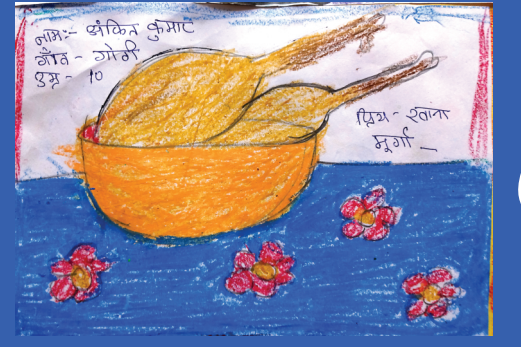 नाम:- अंकित कुमार
गाँव - गोरी
उम्र - 10
प्रिय - खाना
मुर्गा -